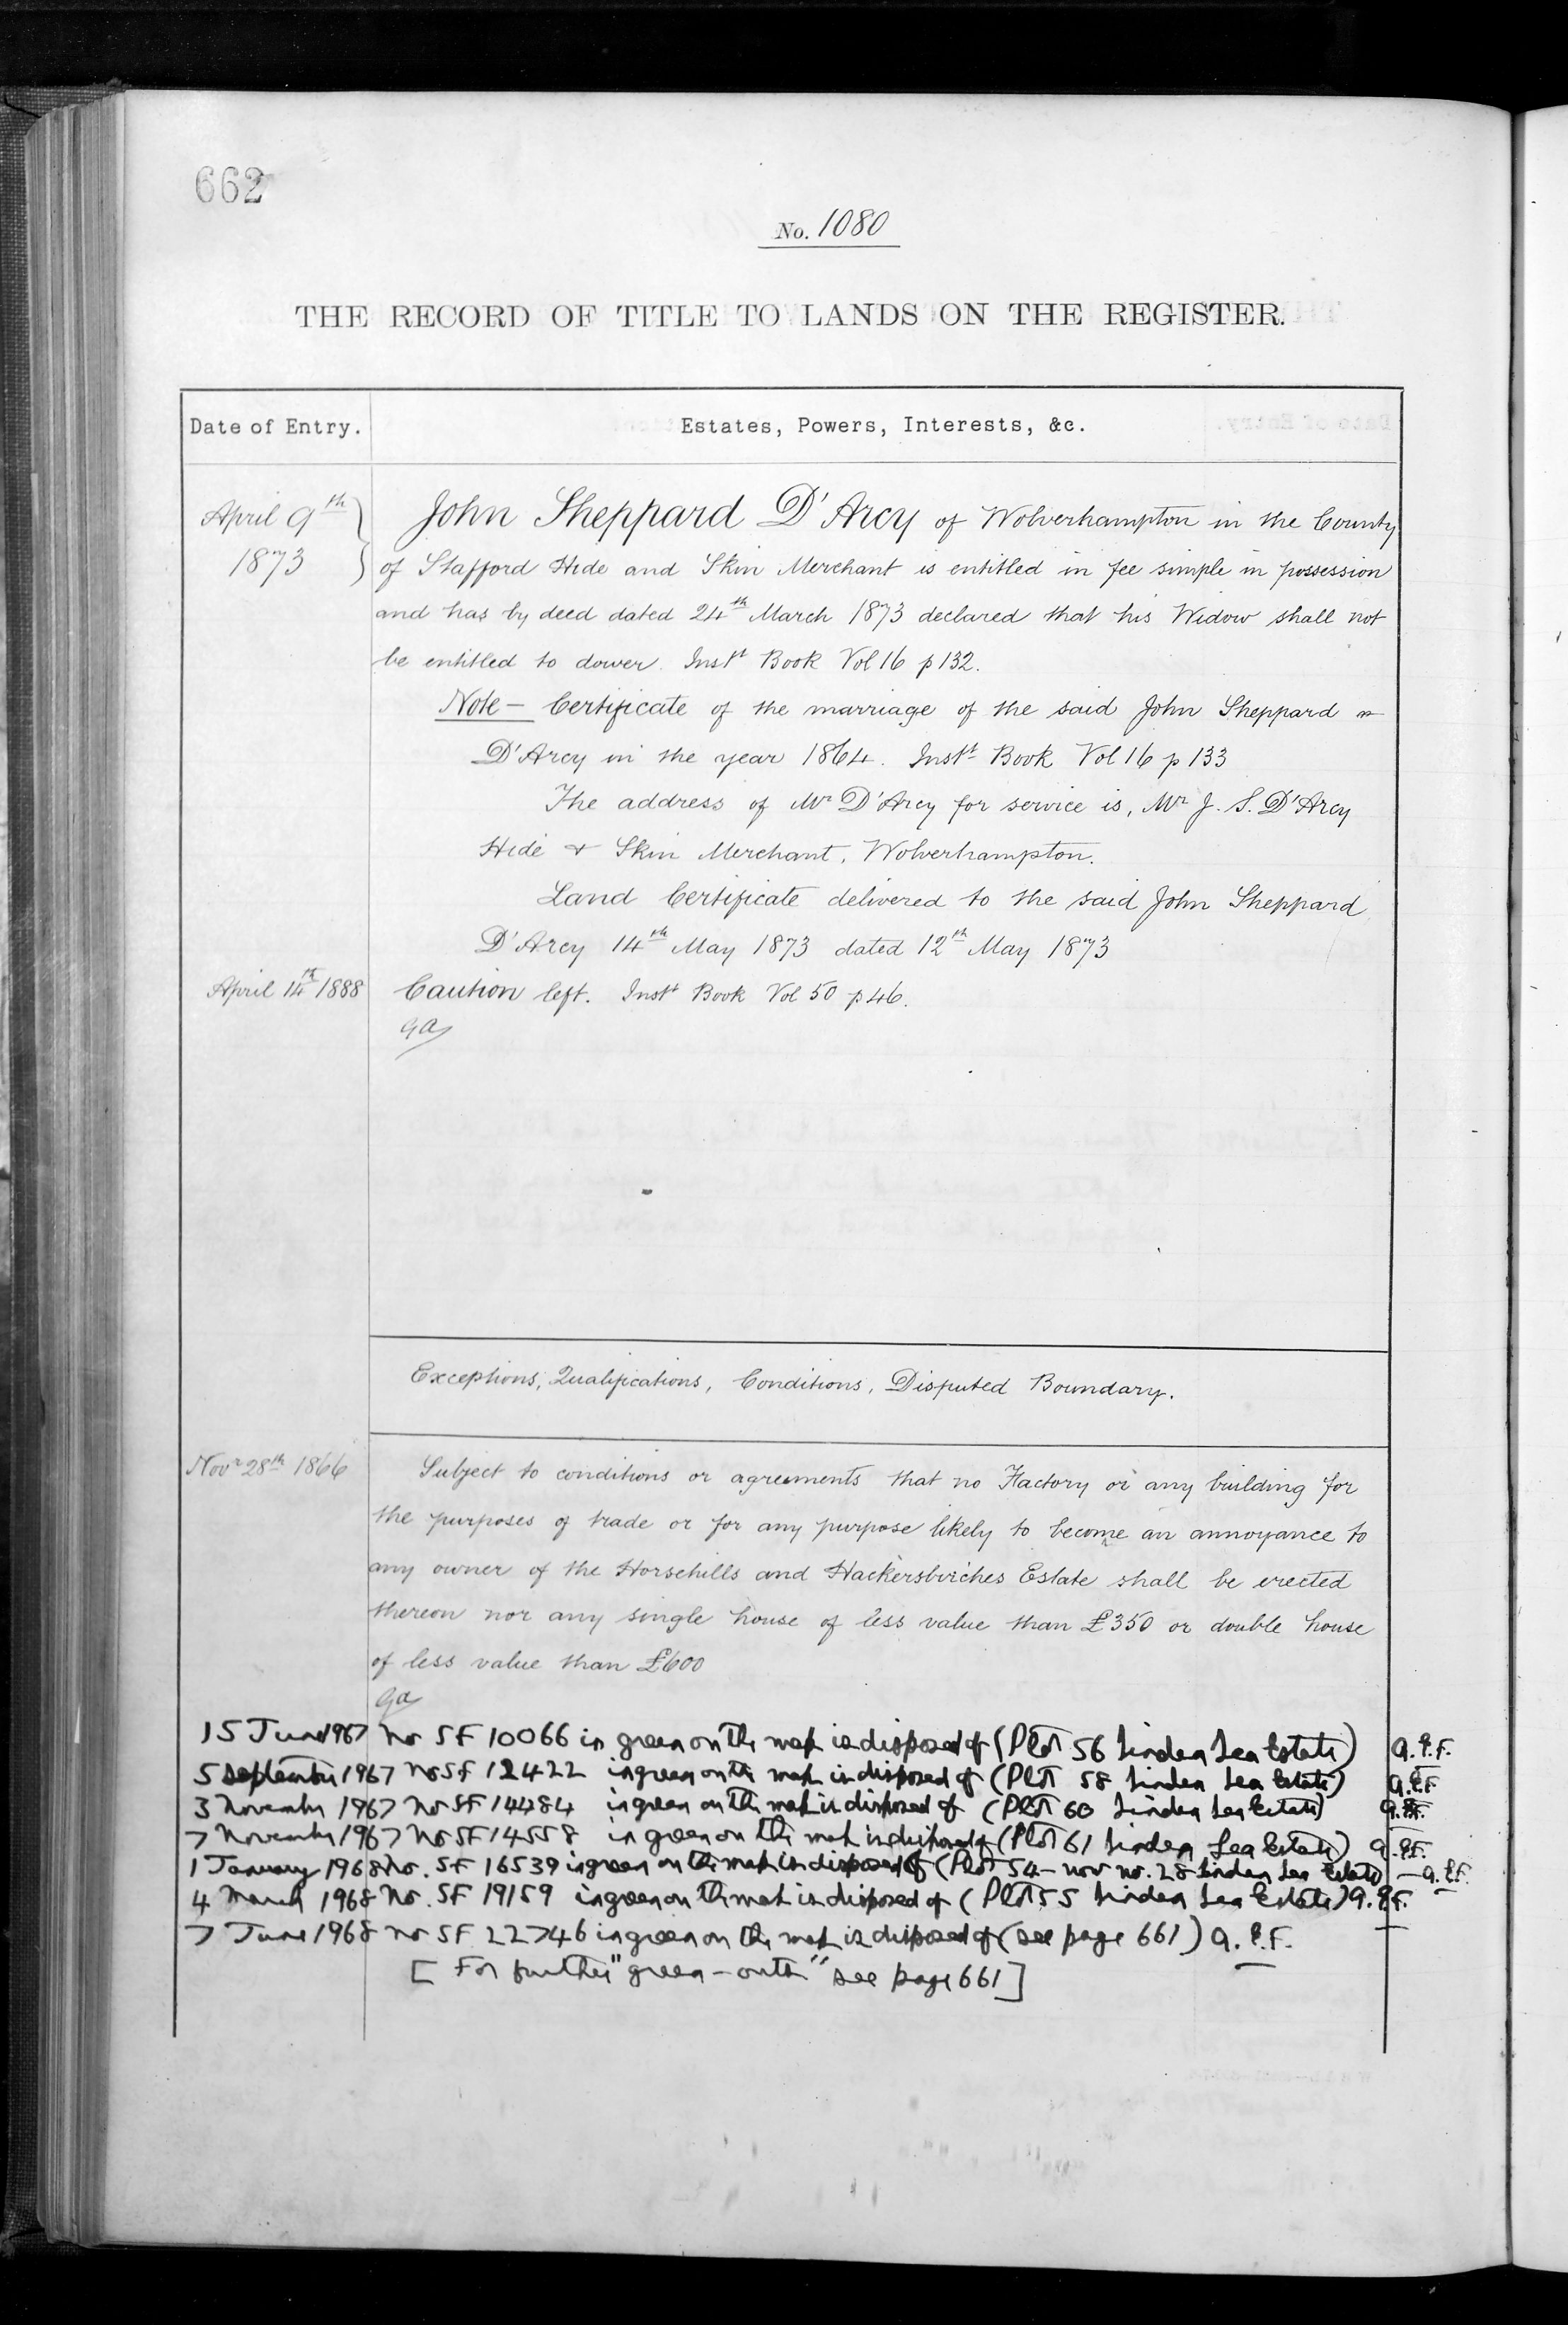 662
No. 1080
THE RECORD OF TITLE TO LANDS ON THE REGISTER.
Date of Entry.
Estates, Powers, Interests, &c.
April 9th
1873
John Sheppard D'Arcy of Wolverhampton in the County
of Stafford Hide and Skin Merchant is entitled in fee simple in possession
and has by deed dated 24th March 1873 declared that his Widow shall not
be entitled to dower. Instt Book Vol 16 p 132.
Note - Certificate of the marriage of the said John Sheppard
D'Arcy in the year 1864. Instt Book Vol 16 p 133
The address of Mr D'Arcy for service is, Mr J. S. D'Arcy
Hide & Skin Merchant, Wolverhampton.
Land Certificate delivered to the said John Sheppard
D'Arcy 14th May 1873 dated 12th May 1873
April 14th 1888 Caution left. Instt Book Vol 50 p 46.
Exceptions, Qualifications, Conditions, Disputed Boundary.
Novr 28th 1866 Subject to conditions or agreements that no Factory or any building for
the purposes of trade or for any purpose likely to become an annoyance to
any owner of the Horsehills and Hackersbirches Estate shall be erected
thereon nor any single house of less value than £350 or double house
of less value than £600
15 June 1967 No SF 10066 in green on the map is disposed of (Plot 56 Linden Lea Estate) A.E.F.
5 September 1967 No SF 12422 in green on the map is disposed of (Plot 58 Linden Lea Estate) A.E.F.
3 November 1967 No SF 14484 in green on the map is disposed of (Plot 60 Linden Lea Estate) A.E.F.
7 November 1967 No SF 14558 in green on the map is disposed of (Plot 61 Linden Lea Estate) A.E.F.
1 January 1968 No. SF 16539 in green on the map is disposed of (Plot 54 - now no. 28 Linden Lea Estate) - A.E.F.
4 March 1968 No. SF 19159 in green on the map is disposed of (Plot 55 Linden Lea Estate) A.E.F.
7 June 1968 No SF 22746 in green on the map is disposed of (see page 661) A.E.F.
[For further "green-outs" see page 661]